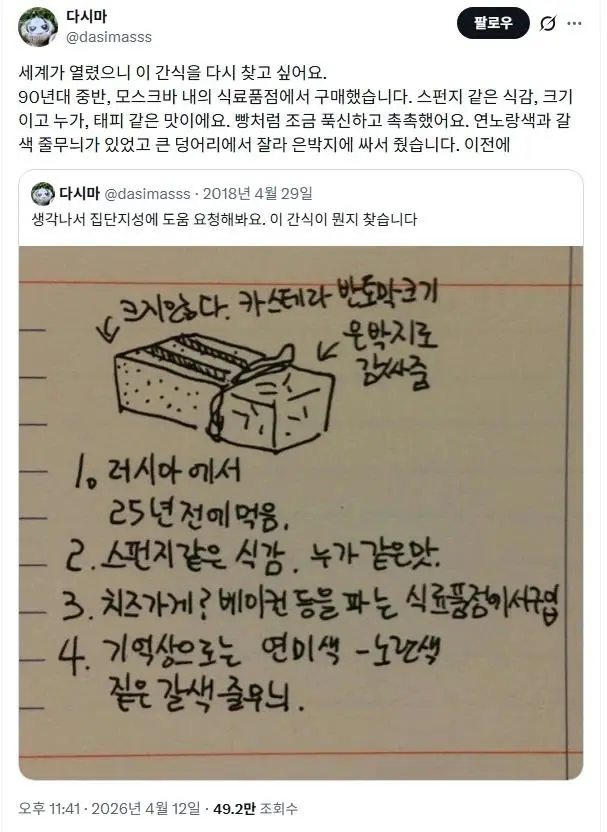 다시마
@dasimasss
팔로우
세계가 열렸으니 이 간식을 다시 찾고 싶어요.
90년대 중반, 모스크바 내의 식료품점에서 구매했습니다. 스펀지 같은 식감, 크기
이고 누가, 태피 같은 맛이에요. 빵처럼 조금 푹신하고 촉촉했어요. 연노랑색과 갈
색 줄무늬가 있었고 큰 덩어리에서 잘라 은박지에 싸서 줬습니다. 이전에
다시마 @dasimasss · 2018년 4월 29일
생각나서 집단지성에 도움 요청해봐요. 이 간식이 뭔지 찾습니다
크지않다. 카스테라 반토막크기
은박지로
감싸줌
1. 러시아에서
25년전에먹음.
2. 스펀지같은 식감. 누가 같은맛.
3. 치즈가게? 베이컨 등을 파는 식료품점에서구입
4. 기억상으로는 연미색 - 노란색
짙은 갈색 줄무늬.
오후 11:41 · 2026년 4월 12일 · 49.2만 조회수